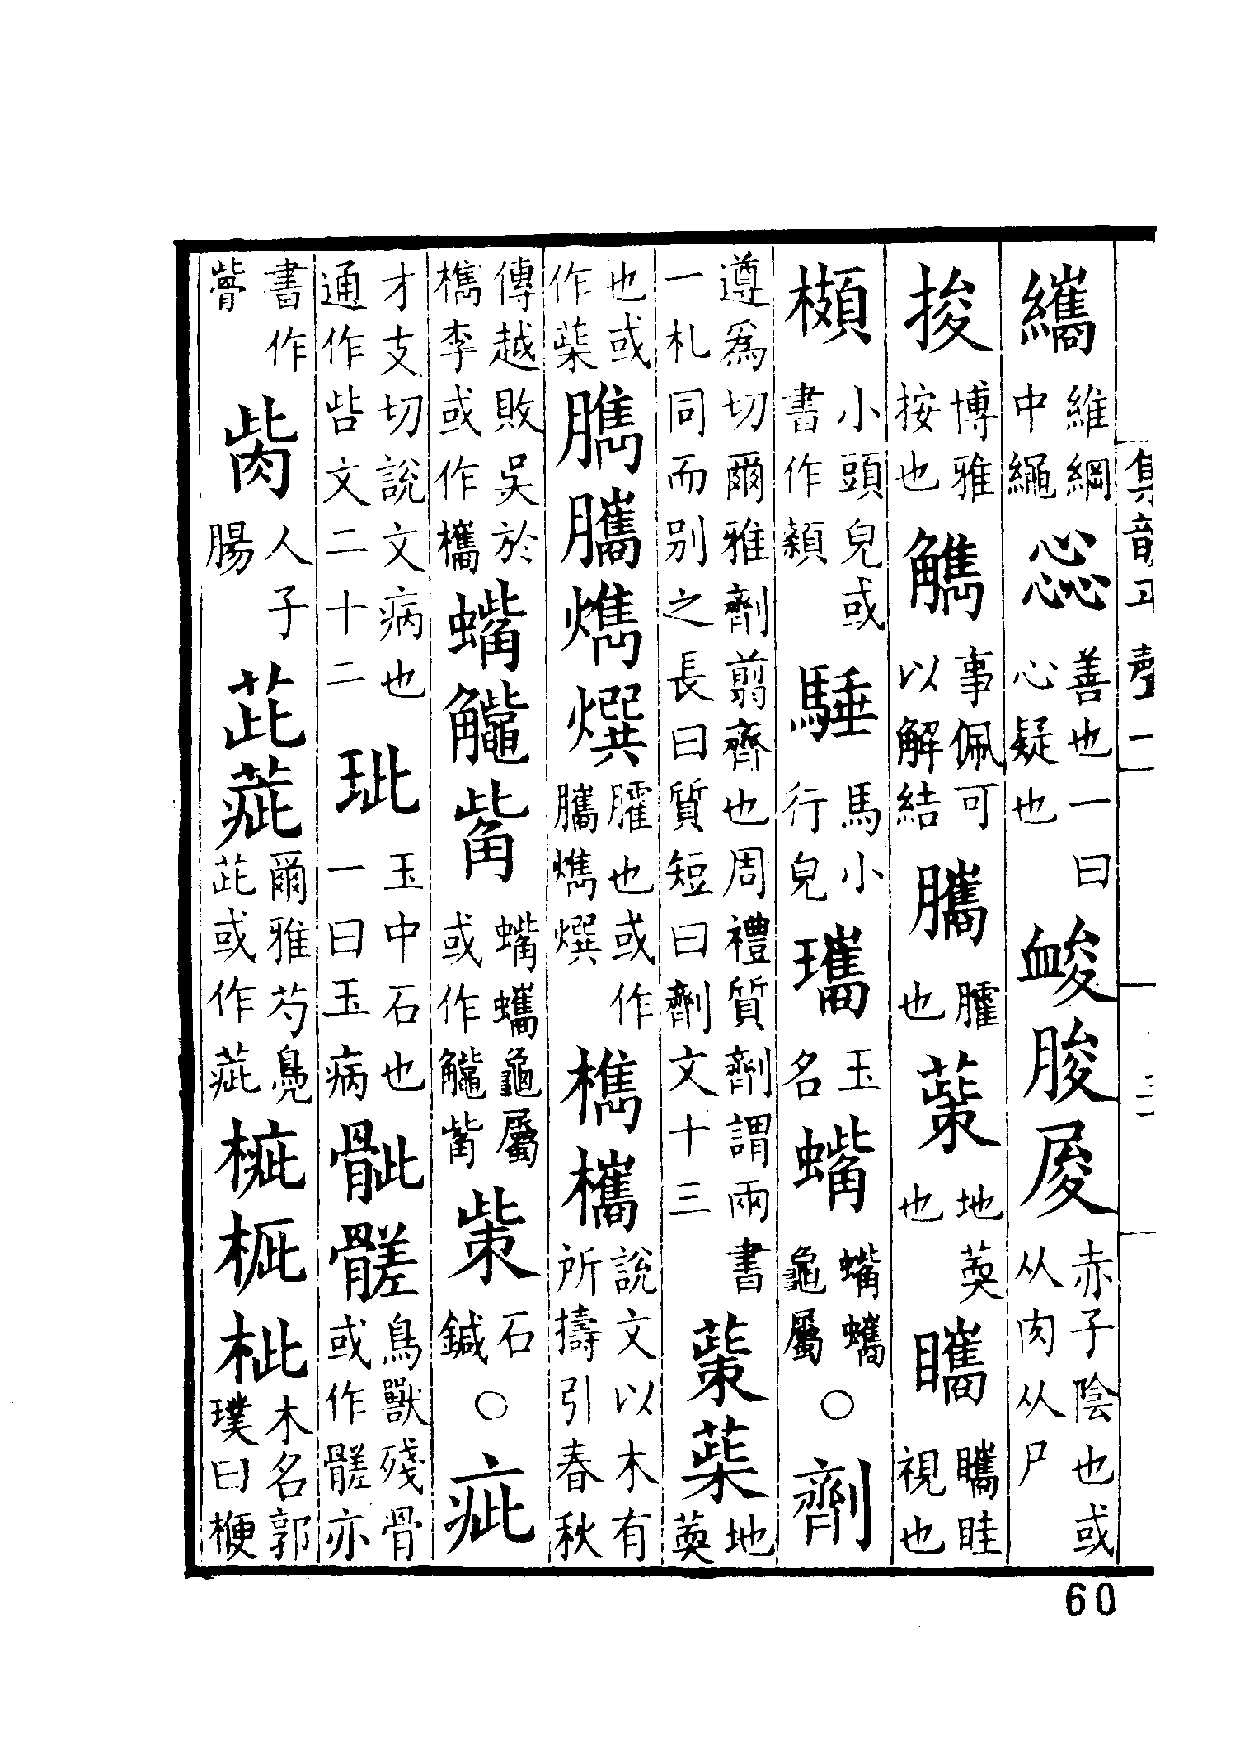 集韻平聲一
纗維綱中繩惢善也一曰心疑也䘒朘㕙赤子陰也或从肉从尸
捘博雅按也觹事佩可以解結臇臛也䔉地䓏也矖䂓眭視也
㰎小頭皃或書作䫌騅馬小行皃瓗玉名蟕蟕蠵龜屬○劑
遵爲切爾雅劑翦齊也周禮質劑謂兩書一札同而別之長曰質短曰劑文十三䔉茈地䓏
也或作茈臇臇㷷㷷臛也或作臇㷷㷷檇欈說文以木有所擣引春秋
傳越敗吳於檇李或作欈蟕觿觜蟕蠵龜屬或作觿觜策石鍼○疵
才支切說文病也通作呰文二十二玼玉中石也一曰玉病骴髊鳥獸殘骨或作髊亦
書作㱴胔人子腸茈䓱爾雅芍鳧茈或作䓱㰣柂枇木名郭璞曰楩
60